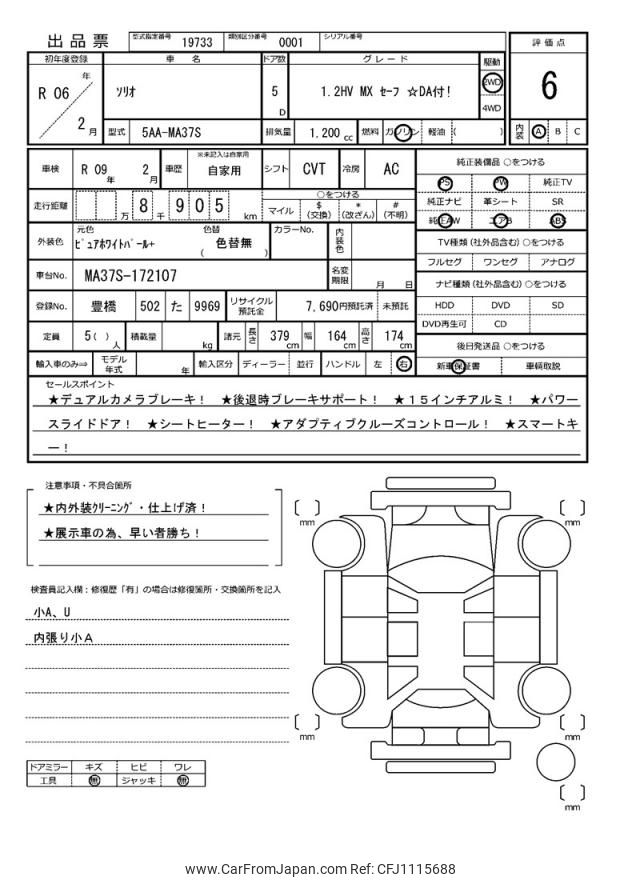 出品票 型式指定番号 19733 類別区分番号 0001 シリアル番号
評価点
初年度登録 車名 ドア数 グレード 駆動
R 06 年 2月 ソリオ 5 D 1.2HV MX セーフ ☆DA付! 2WD 4WD
6
型式 5AA-MA37S 排気量 1.200 cc 燃料 ガソリン 軽油 ( )
内装 A B C
車検 R 09 年 2 月 車歴 ※未記入は自家用 自家用 シフト CVT 冷房 AC
純正装備品 ○をつける
PS PW 純正TV
純正ナビ 革シート SR
純正AW エアB ABS
走行距離 万 8 千 9 0 5 km ○をつける マイル $(交換) *(改ざん) #(不明)
外装色 元色 ピュアホワイトパール+ 色替 ( 色替無 ) カラーNo. 内装色
TV種類 (社外品含む) ○をつける
フルセグ ワンセグ アナログ
車台No. MA37S-172107 名変期限 月 日
ナビ種類 (社外品含む) ○をつける
HDD DVD SD
DVD再生可 CD
登録No. 豊橋 502 た 9969 リサイクル預託金 7,690円預託済 未預託
定員 5( ) 人 積載量 kg 諸元 長さ 379 cm 幅 164 cm 高さ 174 cm
後日発送品 ○をつける
新車保証書 車輌取説
輸入車のみ⇒ モデル年式 年 輸入区分 ディーラー 並行 ハンドル 左 右
セールスポイント
★デュアルカメラブレーキ! ★後退時ブレーキサポート! ★15インチアルミ! ★パワー
スライドドア! ★シートヒーター! ★アダプティブクルーズコントロール! ★スマートキ
ー!
注意事項・不具合箇所
★内外装クリーニング・仕上げ済!
★展示車の為、早い者勝ち!
検査員記入欄:修復歴「有」の場合は修復箇所・交換箇所を記入
小A、U
内張り小A
mm
mm
mm
mm
mm
ドアミラー キズ ヒビ ワレ
工具 無 ジャッキ 無
www.CarFromJapan.com Ref: CFJ1115688